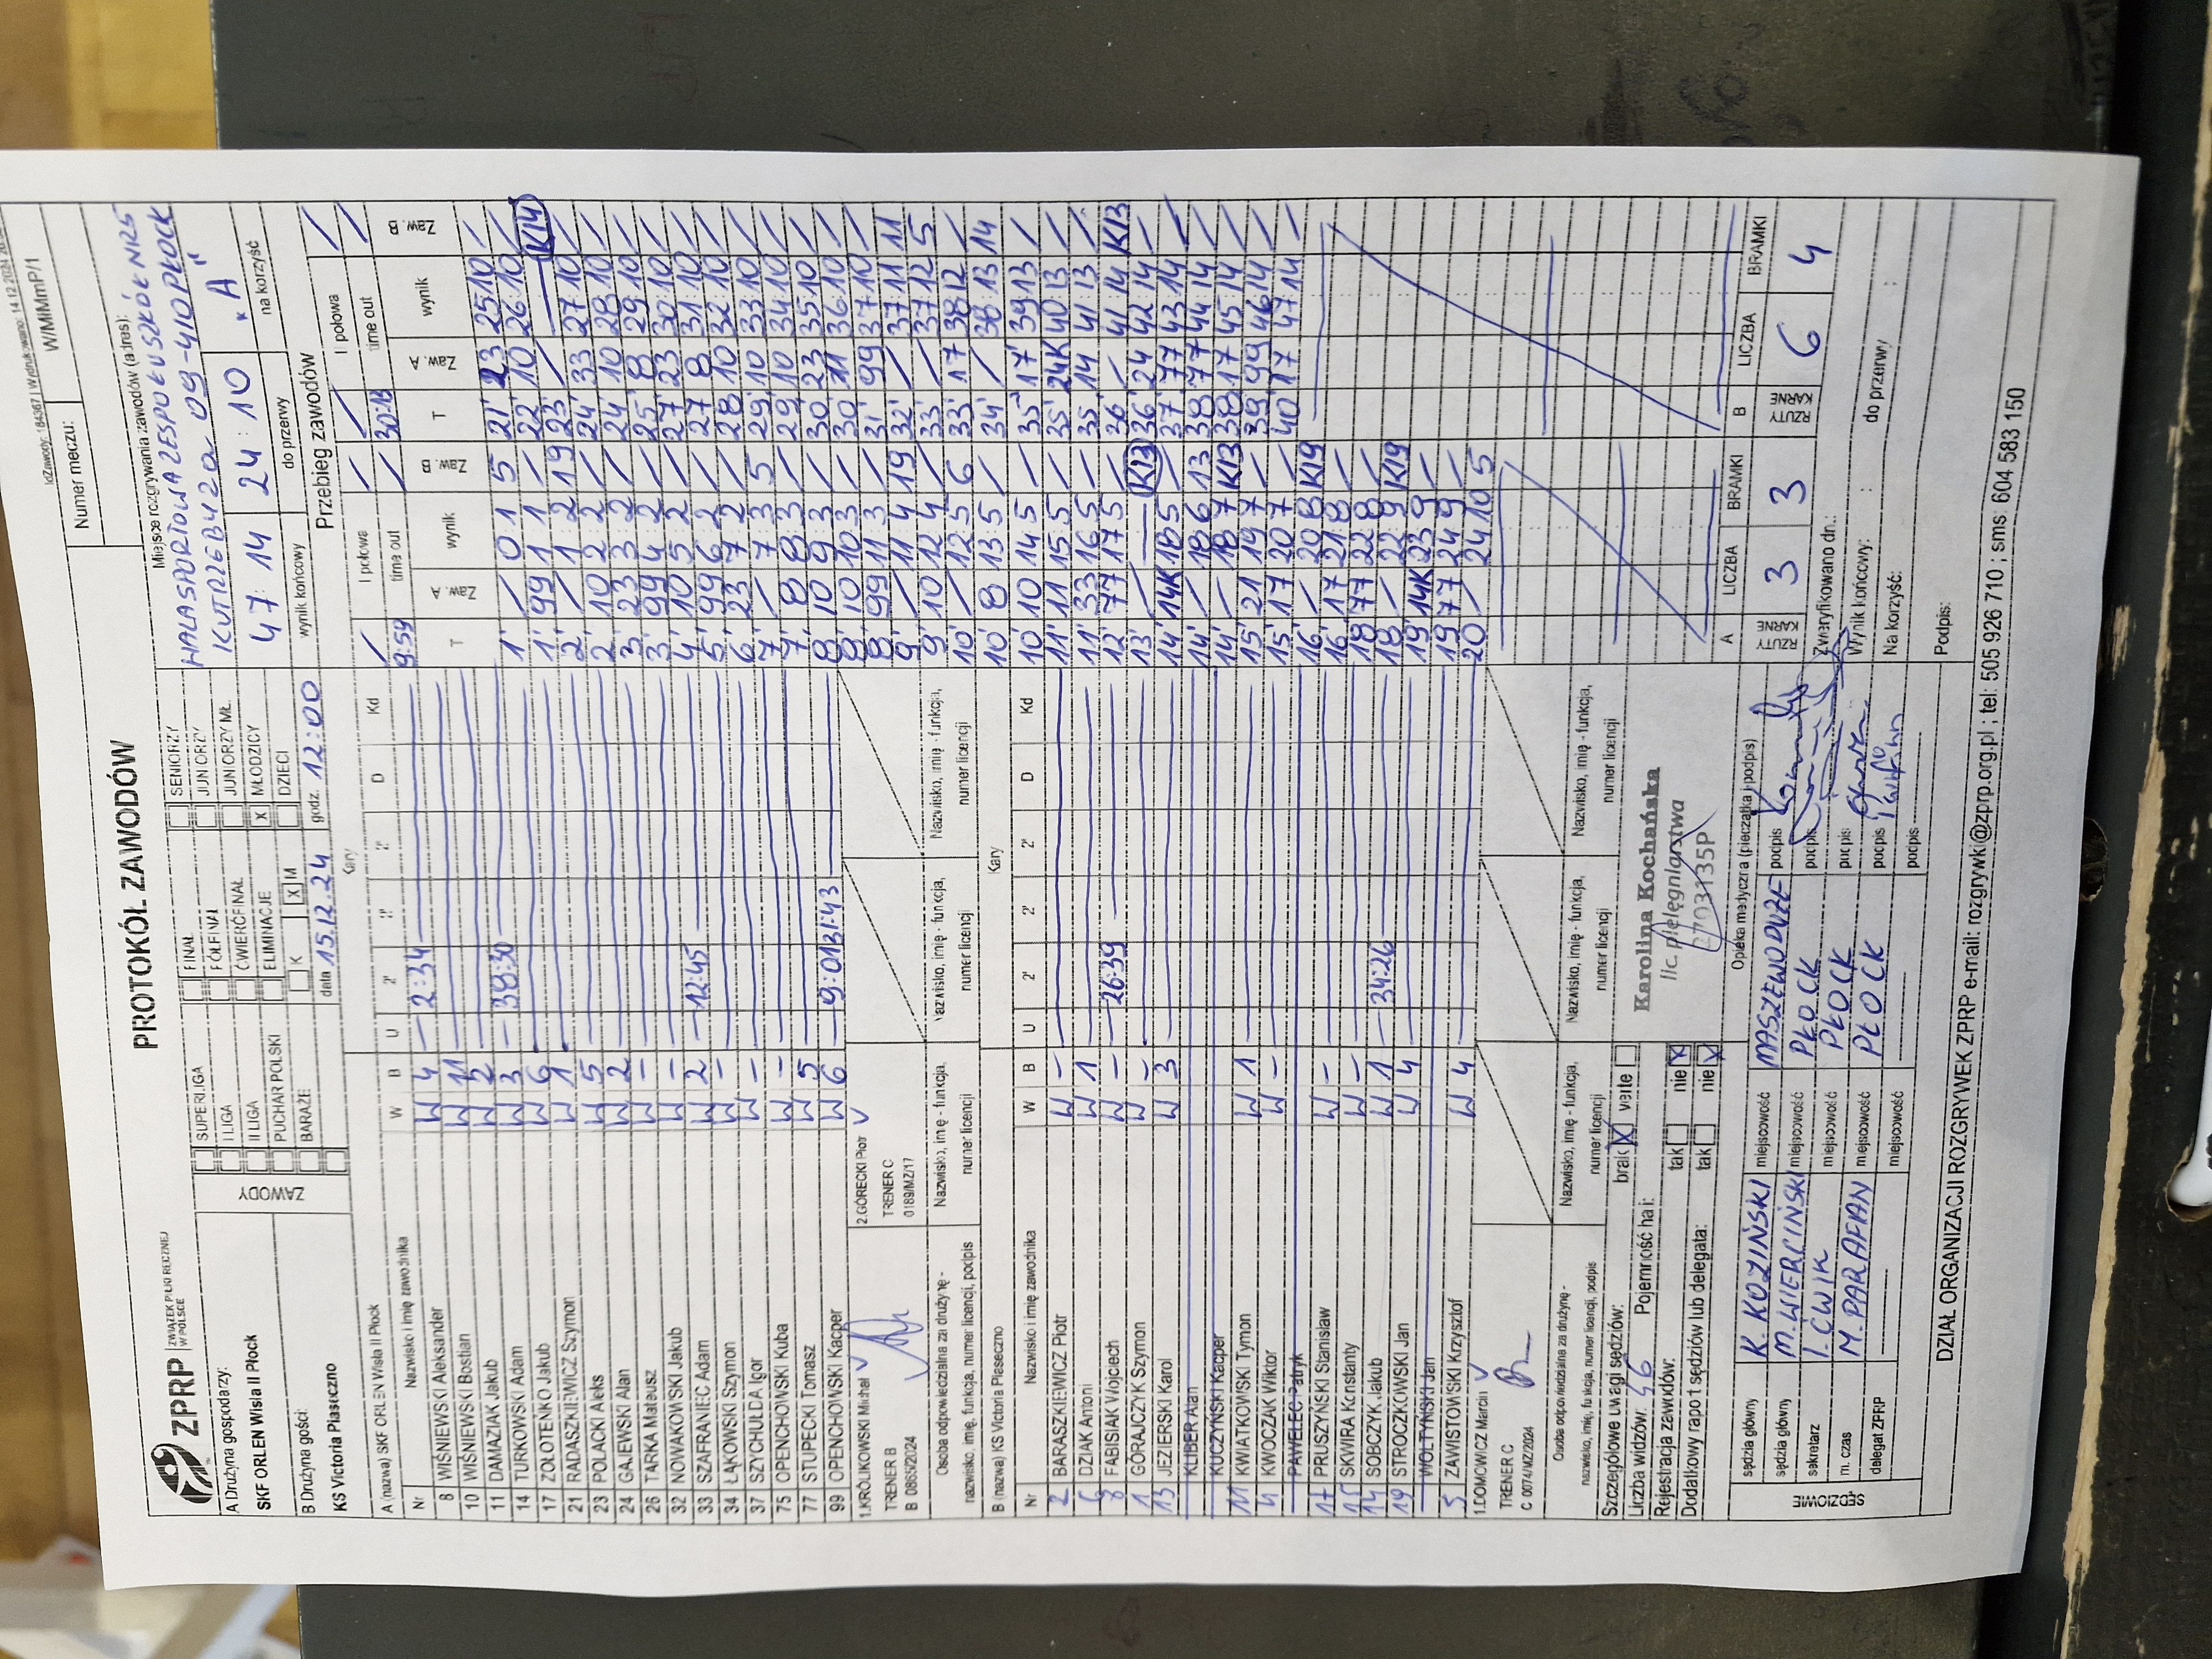 IdZawody: 184367 | Wydrukowano: 14.12.2024
PROTOKÓŁ ZAWODÓW
Numer meczu:
W/MłMmP/1
ZPRP ZWIĄZEK PIŁKI RĘCZNEJ W POLSCE
A Drużyna gospodarzy:
SKF ORLEN Wisła II Płock
B Drużyna gości:
KS Victoria Piaseczno
ZAWODY
SUPERLIGA
I LIGA
II LIGA
PUCHAR POLSKI
BARAŻE:
FINAŁ
PÓŁFINAŁ
ĆWIERĆFINAŁ
ELIMINACJE
K X M
SENIORZY
JUNIORZY
JUNIORZY MŁ.
X MŁODZICY
DZIECI
data 15.12.24 godz. 12:00
Miejsce rozgrywania zawodów (adres):
HALA SPORTOWA ZESPOŁU SZKÓŁ NR 5
KUTRZEBY 2a 09-410 PŁOCK
47 : 14 24 : 10 "A"
wynik końcowy do przerwy na korzyść
Przebieg zawodów
I połowa / / II połowa /
time out 9:59 / 30:18 time out /
T Zaw. A wynik Zaw. B T Zaw. A wynik Zaw. B
A (nazwa) SKF ORLEN Wisła II Płock Kary
Nr Nazwisko i imię zawodnika W B U 2' 2' 2' D Kd
8 WIŚNIEWSKI Aleksander W 4 2:34
10 WIŚNIEWSKI Bostian W 11
11 DAMAZIAK Jakub W 2
14 TURKOWSKI Adam W 3 38:30
17 ZOŁOTENKO Jakub W 6
21 RADASZKIEWICZ Szymon W 1
23 POLACKI Aleks W 5
24 GAJEWSKI Alan W 2
26 TARKA Mateusz W -
32 NOWAKOWSKI Jakub W -
33 SZAFRANIEC Adam W 2 12:45
34 ŁĄKOWSKI Szymon W -
37 SZYCHULDA Igor W -
75 OPENCHOWSKI Kuba W -
77 STUPECKI Tomasz W 5
99 OPENCHOWSKI Kacper W 6 9:01 31:43
1.KRÓLIKOWSKI Michał V
TRENER B
B 0865/2024
2.GÓRECKI Piotr V
TRENER C
0189/MZ/17
Osoba odpowiedzialna za drużynę -
nazwisko, imię, funkcja, numer licencji, podpis
Nazwisko, imię - funkcja, numer licencji
Nazwisko, imię - funkcja, numer licencji
Nazwisko, imię - funkcja, numer licencji
B (nazwa) KS Victoria Piaseczno Kary
Nr Nazwisko i imię zawodnika W B U 2' 2' 2' D Kd
2 BARASZKIEWICZ Piotr W -
6 DZIJAK Antoni W 1
8 FABISIAK Wojciech W - 26:39
1 GÓRAJCZYK Szymon W -
13 JEZIERSKI Karol W 3
KLIBER Alan
KUCZYŃSKI Kacper
11 KWIATKOWSKI Tymon W 1
4 KWOCZAK Wiktor W -
PAWELEC Patryk
17 PRUSZYŃSKI Stanisław W -
15 SKWIRA Konstanty W -
14 SOBCZYK Jakub W 1 34:26
19 STROCZKOWSKI Jan W 4
WOŁTYŃSKI Jan
5 ZAWISTOWSKI Krzysztof W 4
1.DOMOWICZ Marcin V
TRENER C
C 0074/MZ/2024
Osoba odpowiedzialna za drużynę -
nazwisko, imię, funkcja, numer licencji, podpis
Nazwisko, imię - funkcja, numer licencji
Nazwisko, imię - funkcja, numer licencji
Nazwisko, imię - funkcja, numer licencji
1' / 0 1 5
1' 99 1 1 /
2' / 1 2 19
2' 10 2 2 /
3' 23 3 2 /
3' 99 4 2 /
4' 10 5 2 /
5' 99 6 2 /
6' 23 7 2 /
7' / 7 3 5
7' 8 8 3 /
8' 10 9 3 /
8' 10 10 3 /
8' 99 11 3 /
9' / 11 4 19
9' 10 12 4 /
10' / 12 5 6
10' 8 13 5 /
10' 10 14 5 /
11' 11 15 5 /
11' 33 16 5 /
12' 77 17 5 /
13' / — K13
14' 14K 18 5 /
14' / 18 6 13
14' / 18 7 K13
15' 21 19 7 /
15' 17 20 7 /
16' / 20 8 K19
16' 17 21 8 /
18' 77 22 8 /
18' / 22 9 K19
19' 14K 23 9 /
19' 77 24 9 /
20' / 24 10 5
21' 23 25 10 /
22' 10 26 10 /
23' / — K14
24' 33 27 10 /
24' 10 28 10 /
25' 8 29 10 /
27' 23 30 10 /
27' 8 31 10 /
28' 10 32 10 /
29' 10 33 10 /
29' 10 34 10 /
30' 23 35 10 /
30' 11 36 10 /
31' 99 37 10 /
32' / 37 11 11
33' / 37 12 5
33' 17 38 12 /
34' / 38 13 14
35' 17 39 13 /
35' 24K 40 13 /
35' 14 41 13 /
36' / 41 14 K13
36' 24 42 14 /
37' 77 43 14 /
38' 77 44 14 /
38' 17 45 14 /
39' 99 46 14 /
40' 17 47 14 /
A RZUTY KARNE LICZBA 3 BRAMKI 3
B RZUTY KARNE LICZBA 6 BRAMKI 4
Szczegółowe uwagi sędziów: brak X verte
Liczba widzów: 56 Pojemność hali:
Rejestracja zawodów: tak nie X
Dodatkowy raport sędziów lub delegata: tak nie X
Karolina Kochańska
lic. pielęgniarstwa
2703135P
Opieka medyczna (pieczątka i podpis)
SĘDZIOWIE
sędzia główny K. KOZIŃSKI miejscowość MASZEWO DUŻE podpis
sędzia główny M. WIERCIŃSKI miejscowość PŁOCK podpis
sekretarz I. ĆWIK miejscowość PŁOCK podpis
m. czas M. PARAFIAN miejscowość PŁOCK podpis
delegat ZPRP miejscowość podpis
Zweryfikowano dn.:
Wynik końcowy: : do przerwy
Na korzyść:
Podpis:
DZIAŁ ORGANIZACJI ROZGRYWEK ZPRP e-mail: rozgrywki@zprp.org.pl ; tel: 505 926 710 ; sms: 604 583 150